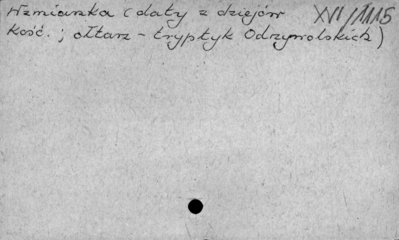 Wzmianka (daty z dziejów XVI/1115
kość.; ołtarz - tryptyk Odrzywolskich)